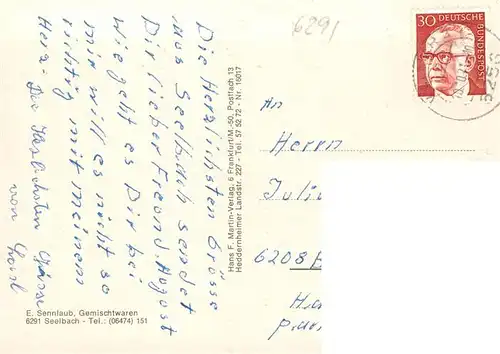 Die Herzlichsten Grüsse
Aus Seelbach sendet
Dir lieber Freund August
Wie geht es Dir bei
mir will es nicht so
richtig mit meinem
Herz. Die Herzlichsten Grüsse
von
E. Sennlaub, Gemischtwaren
6291 Seelbach - Tel.: (06474) 151
Hans F. Martin-Verlag, 6 Frankfurt/M.-50, Postfach 13
Heddernheimer Landstr. 227 - Tel. 57 52 72 - Nr. 16017
6291
30 DEUTSCHE
BUNDESPOST
An
Herrn
6208